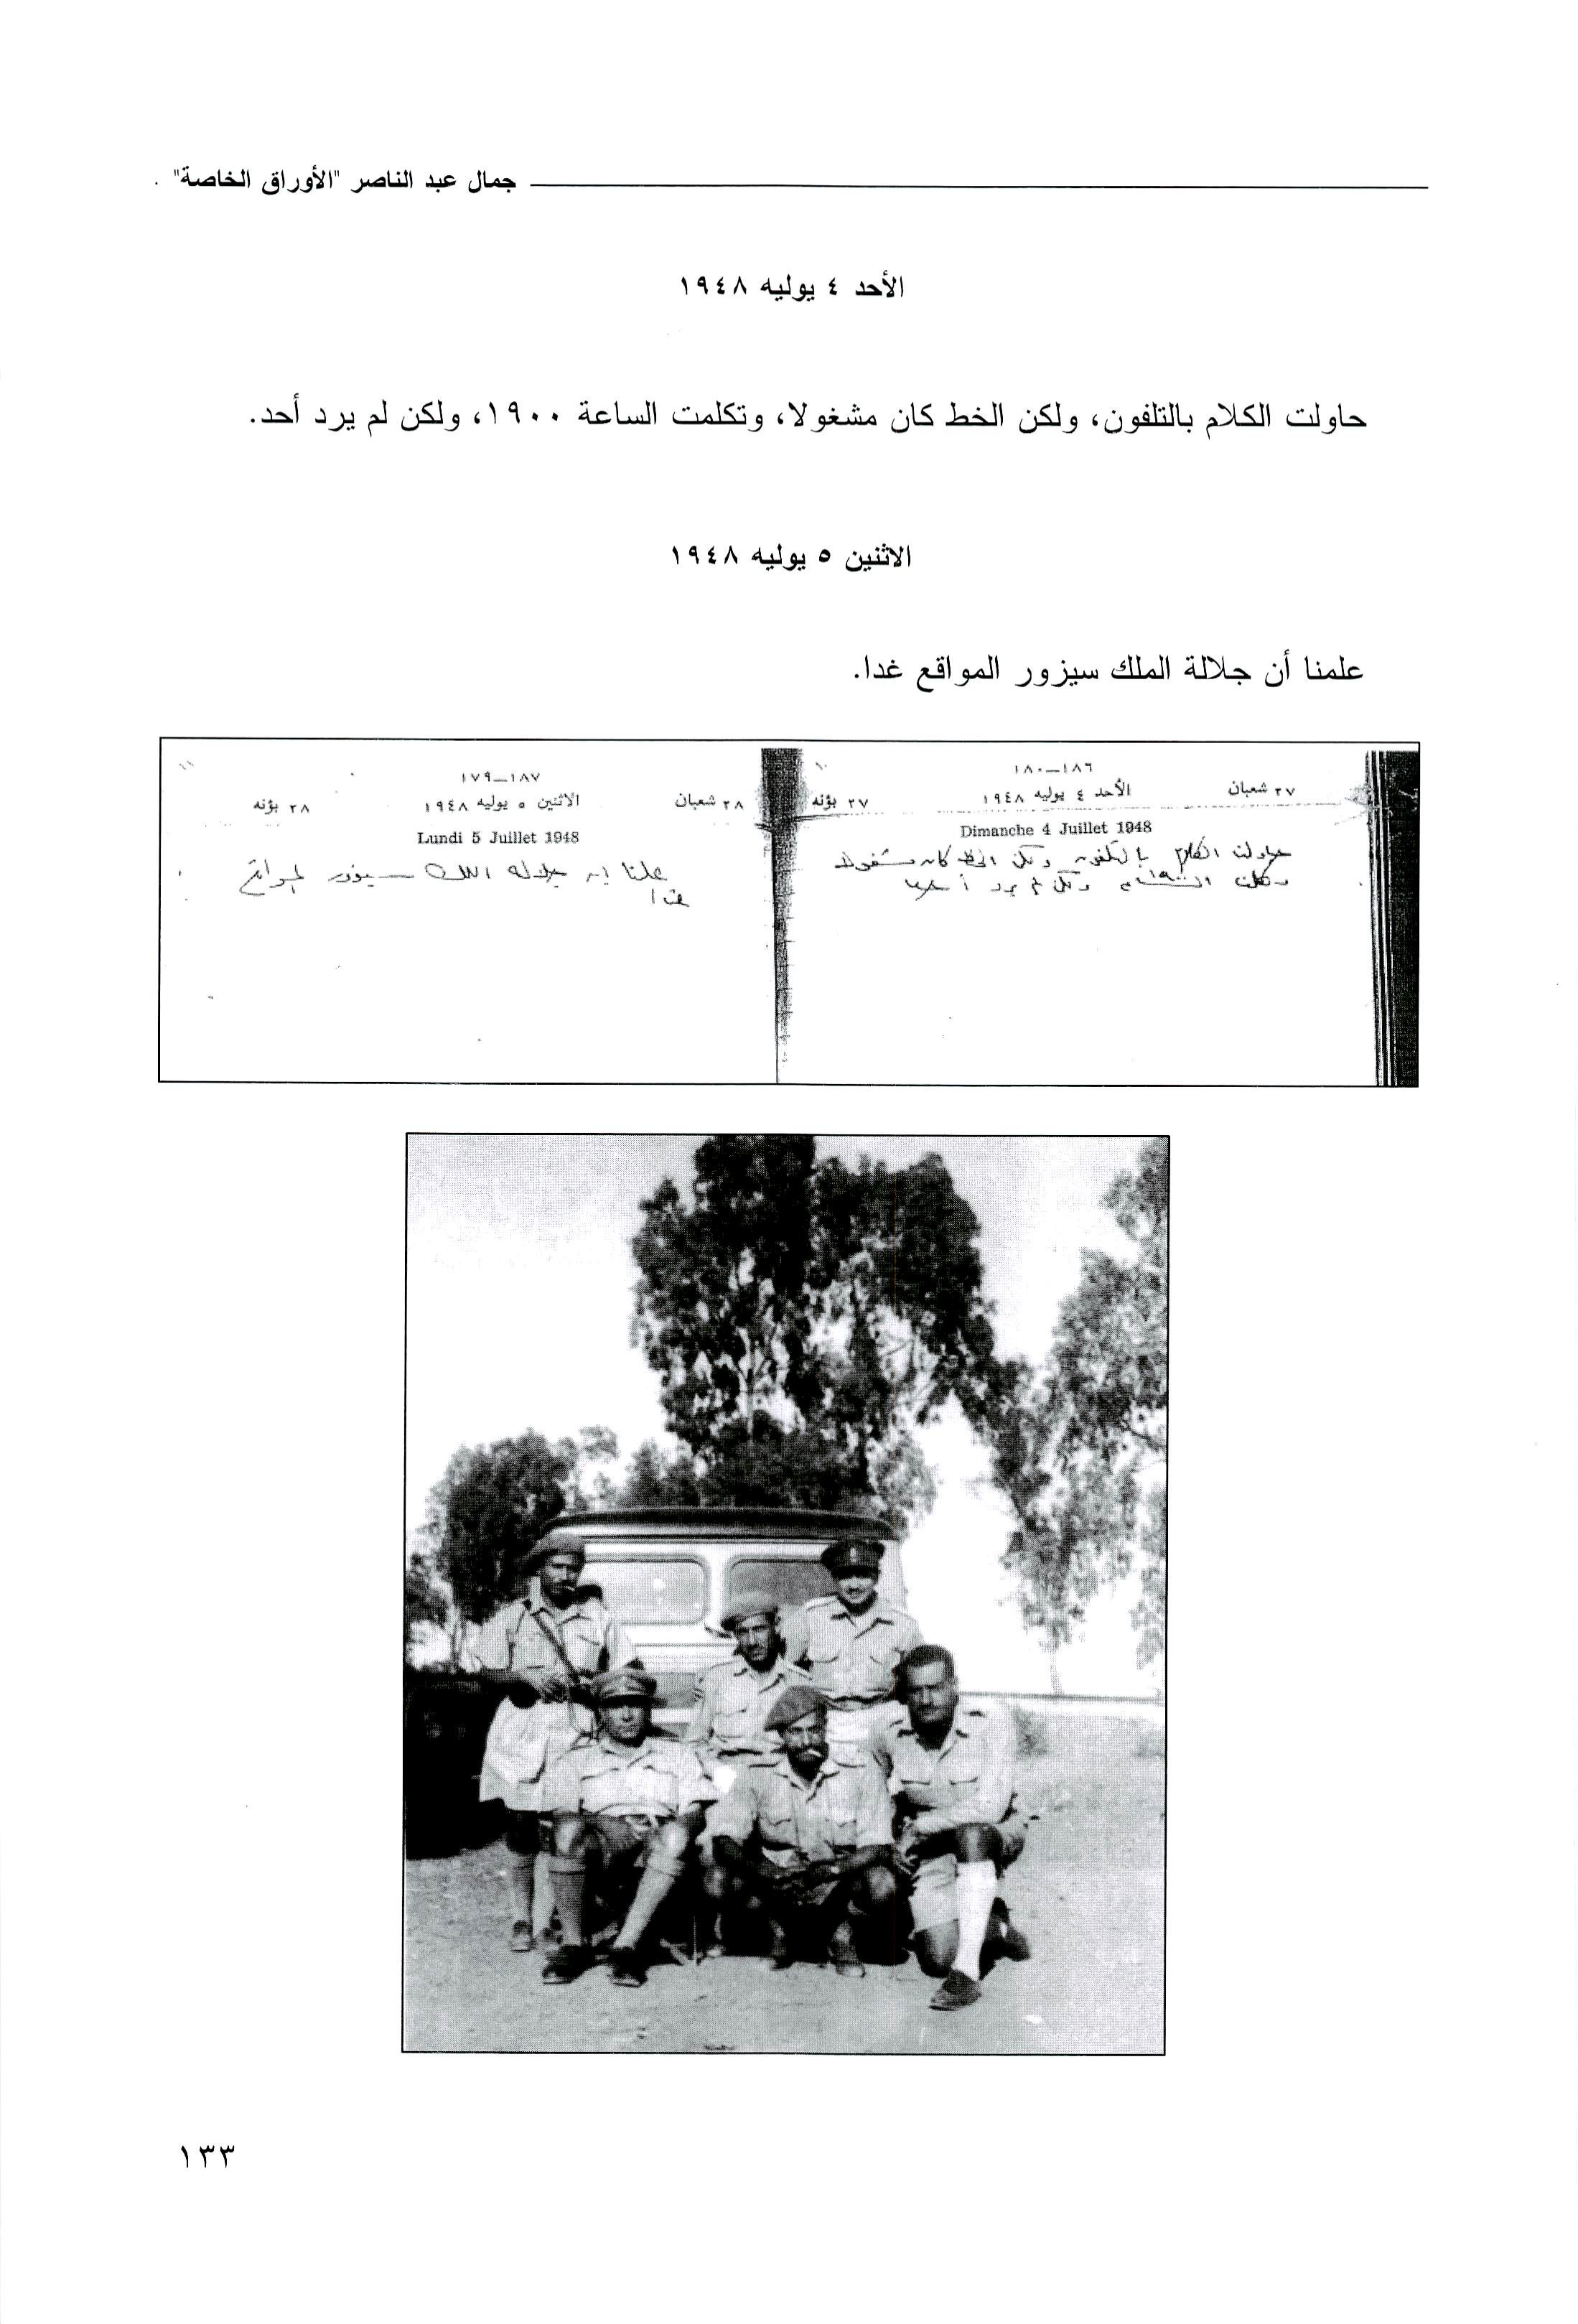 جمال عبد الناصر "الأوراق الخاصة"
الأحد ٤ يوليه ١٩٤٨
حاولت الكلام بالتلفون، ولكن الخط كان مشغولا، وتكلمت الساعة ١٩٠٠، ولكن لم يرد أحد.
الاثنين ٥ يوليه ١٩٤٨
علمنا أن جلالة الملك سيزور المواقع غدا.
١٨٦–١٨٠
٢٧ شعبان الأحد ٤ يوليه ١٩٤٨ ٢٧ بؤنه
Dimanche 4 Juillet 1948
حاولت الكلام بالتلفون ولكن الخط كان مشغولا
وتكلمت الساعة ١٩٠٠ ولكن لم يرد أحد
١٨٧–١٧٩
٢٨ شعبان الاثنين ٥ يوليه ١٩٤٨ ٢٨ بؤنه
Lundi 5 Juillet 1948
علمنا ان جلالة الملك سيزور المواقع
غدا
١٣٣